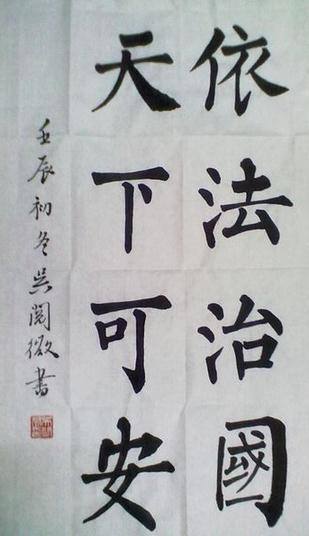 依法治國
天下可安
壬辰初冬吳閱微書